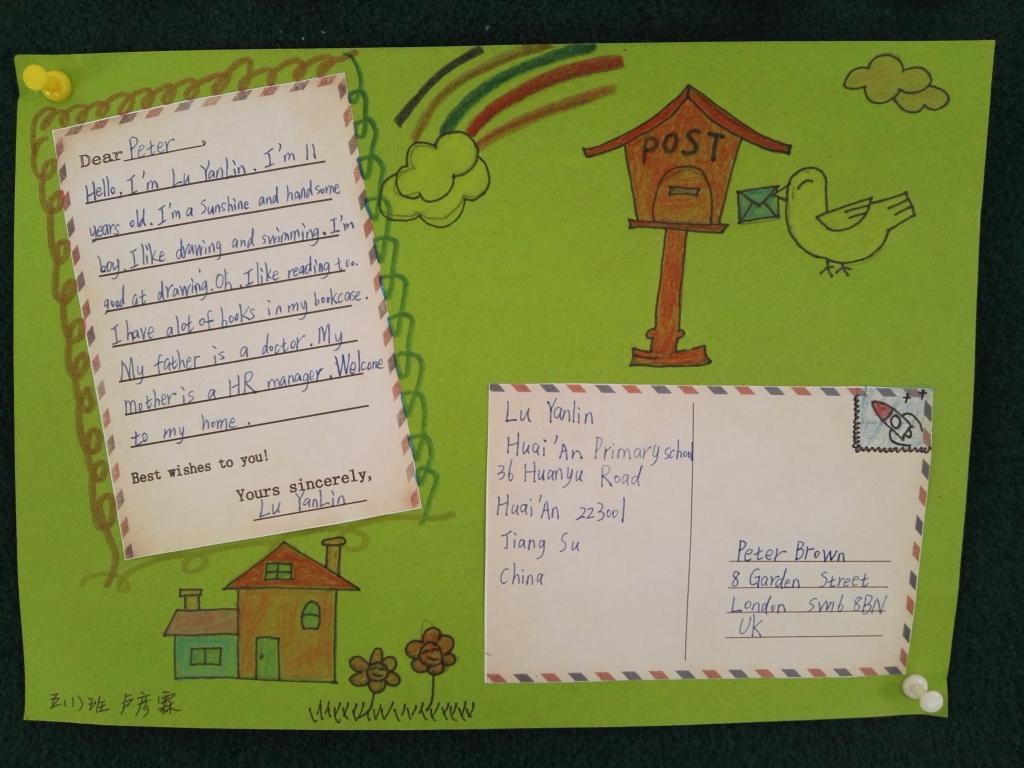 Dear Peter ,
Hello, I'm Lu Yanlin. I'm 11
years old. I'm a Sunshine and handsome
boy. I like drawing and swimming. I'm
good at drawing. Oh, I like reading too.
I have alot of books in my bookcase.
My father is a doctor. My
mother is a HR manager. Welcome
to my home.
Best wishes to you!
Yours sincerely,
Lu YanLin
POST
Lu Yanlin
Huai'An Primary school
36 Huanyu Road
Huai'An 223001
Jiang Su
China
Peter Brown
8 Garden Street
London SW16 8BN
UK
五(1)班 卢彦霖